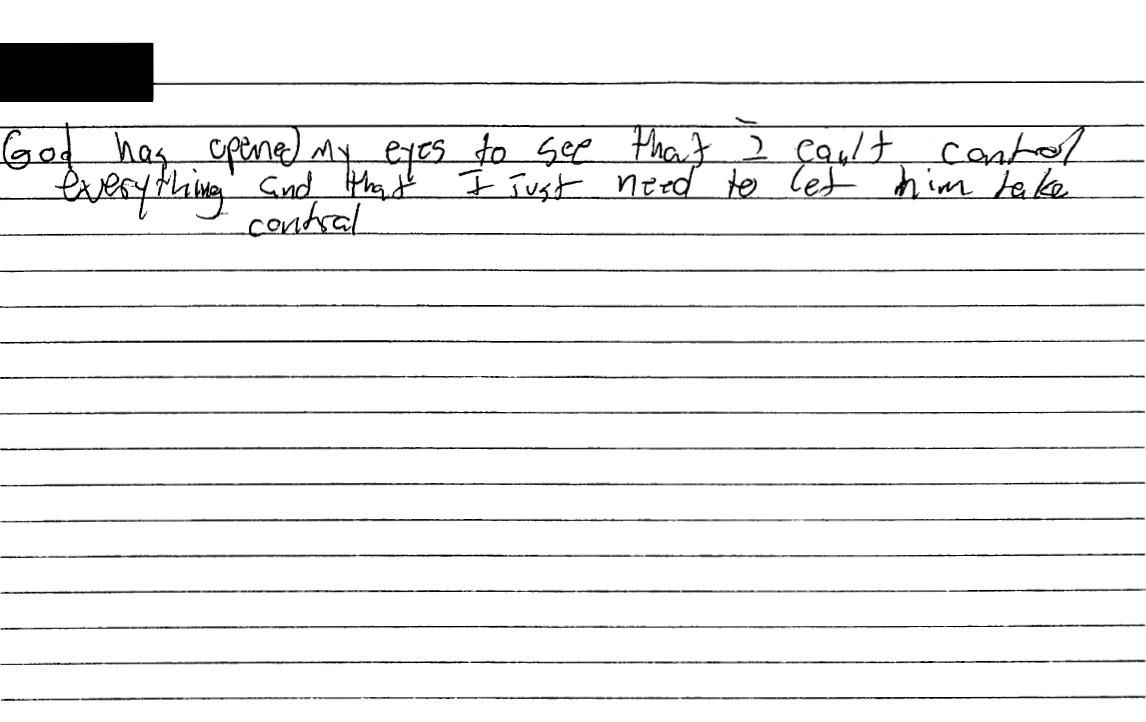 God has opened my eyes to see that I can't control
everything and that I Just need to let him take
control